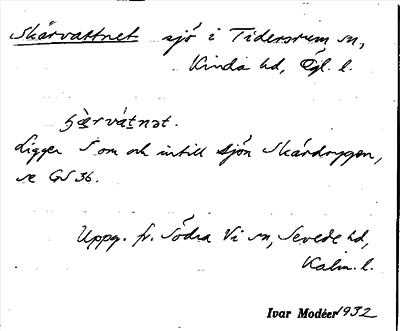 Skärvattnet sjö i Tidersrum sn,
Kinda hd, Ögl. l.
ʂæ̀rvátnət.
Ligger S om och intill sjön Skärdryggen,
se GS 36.
Uppg. fr. Södra Vi sn, Sevede hd,
Kalm. l.
Ivar Modéer 1932